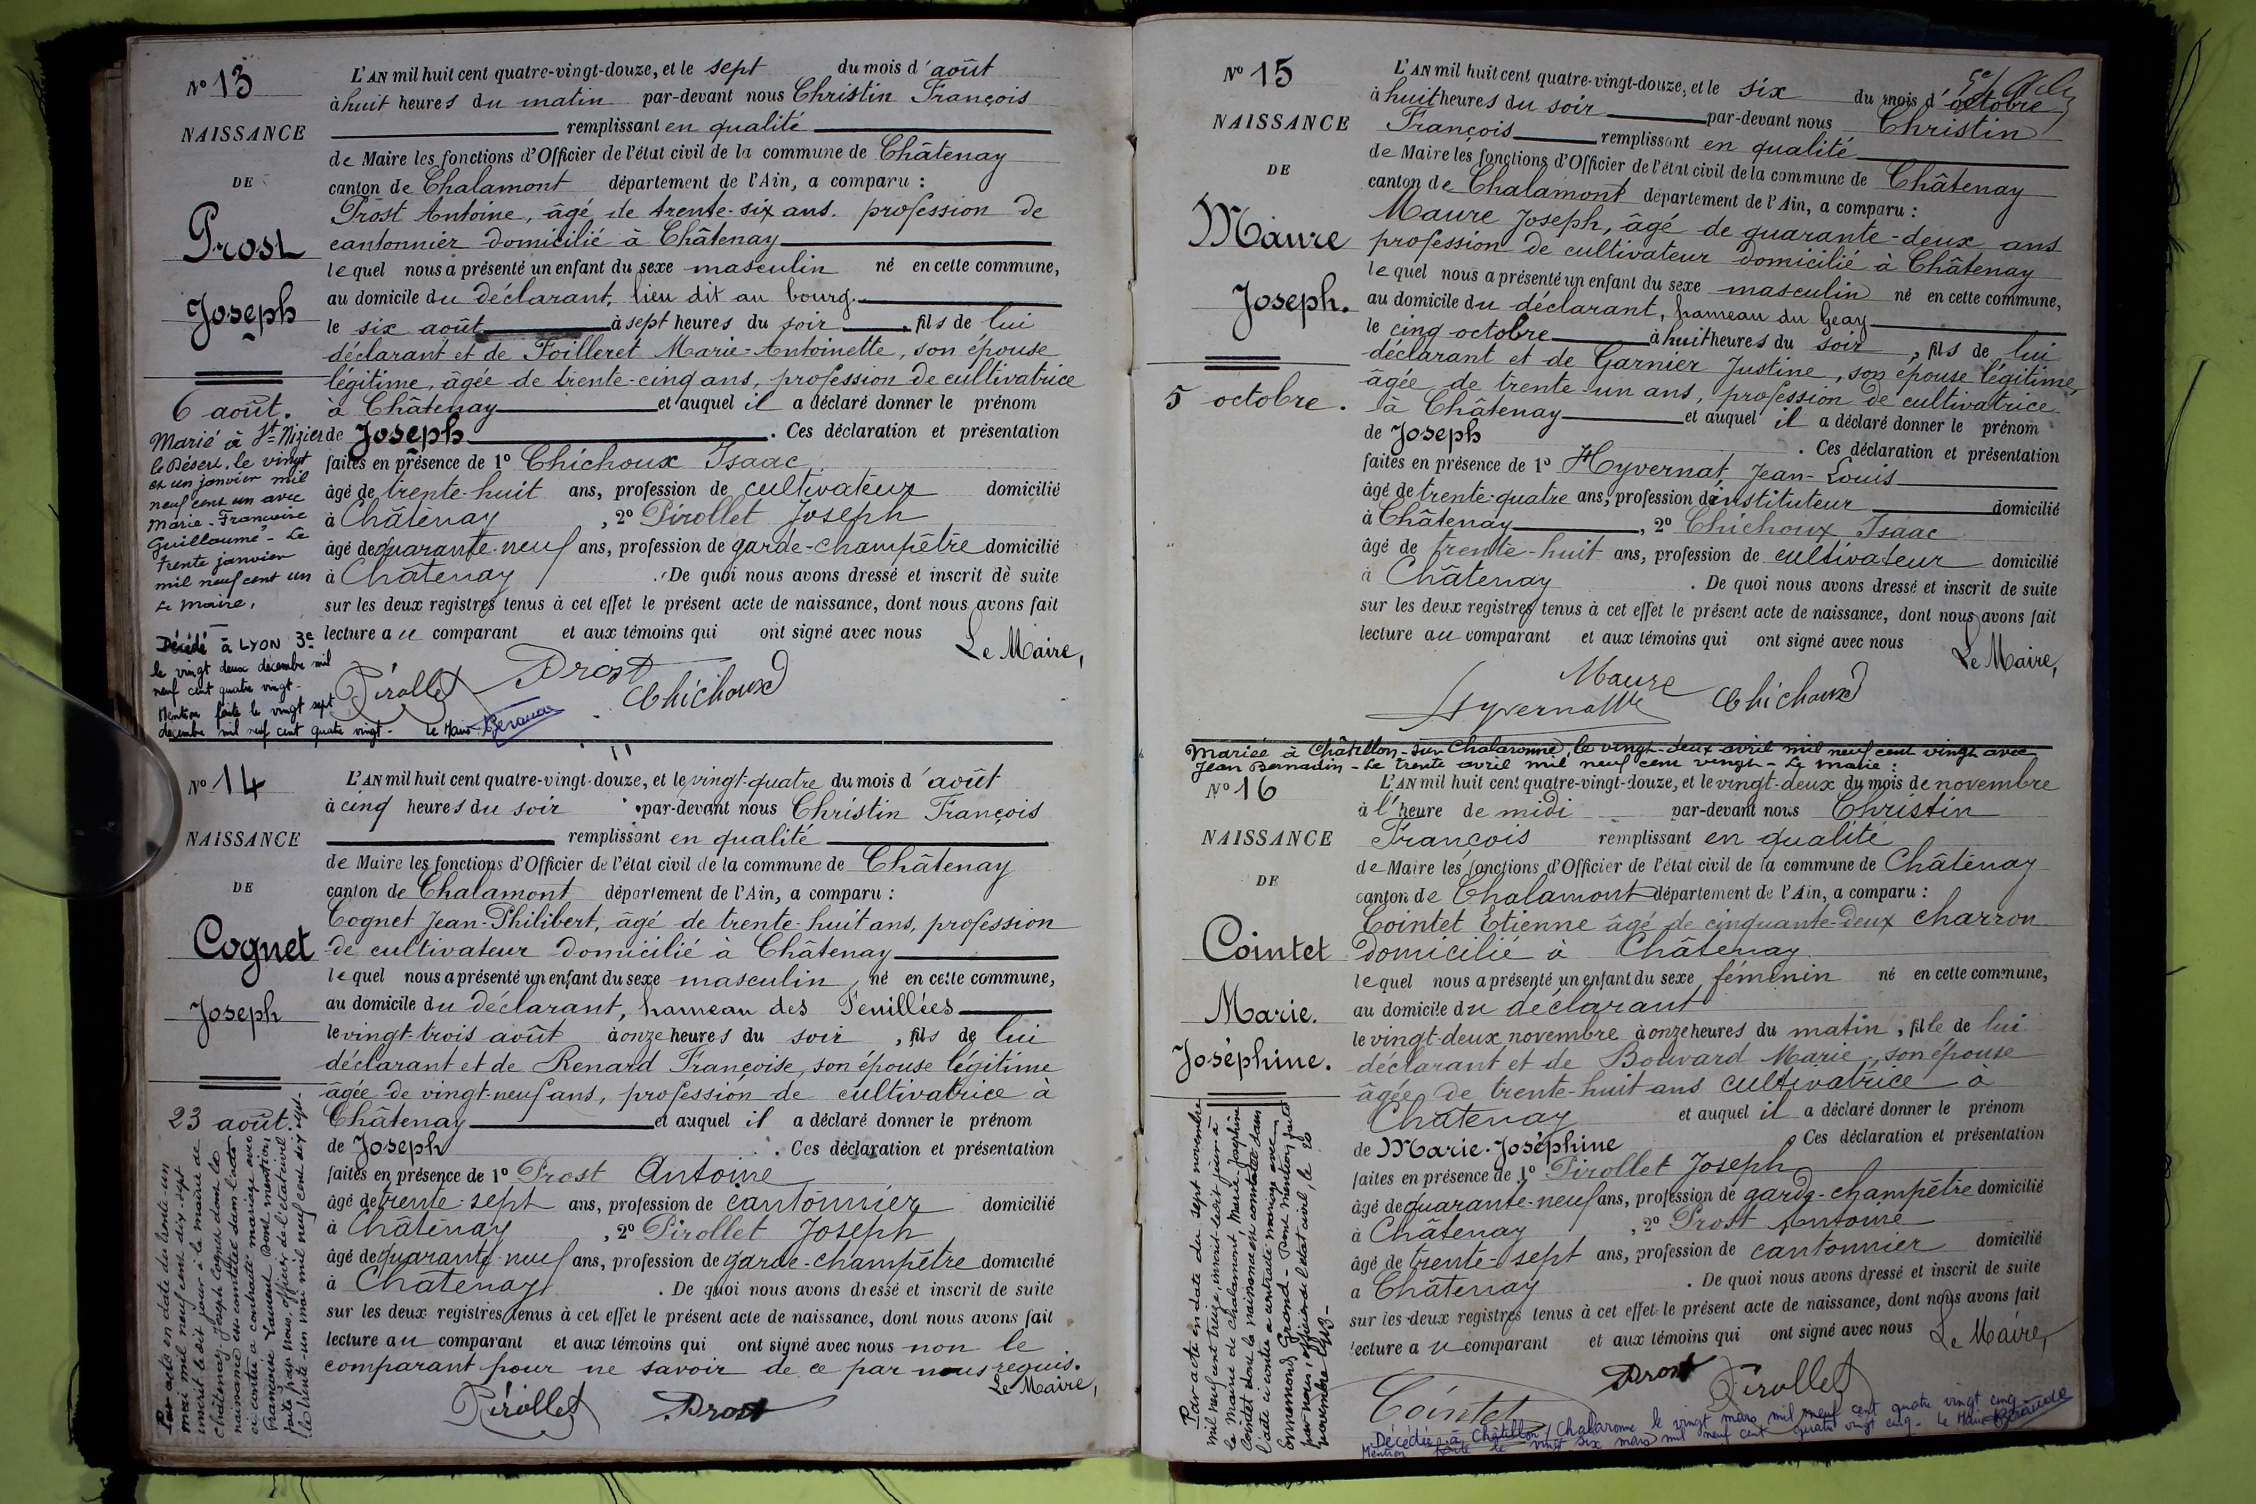 N° 13
NAISSANCE
DE
Prost
Joseph
6 août.
Marié à St Nizier
le Désert, le vingt
et un janvier mil
neuf cent un avec
Marie-Françoise
Guillaume - Le
trente janvier
mil neuf cent un
Le Maire,
Décédé à LYON 3e
le vingt deux décembre mil
neuf cent quatre vingt -
Mention faite le vingt sept
décembre mil neuf cent quatre vingt - Le Maire
L'AN mil huit cent quatre-vingt-douze, et le sept du mois d'août
à huit heures du matin par-devant nous Christin François
remplissant en qualité
de Maire les fonctions d'Officier de l'état civil de la commune de Châtenay
canton de Chalamont département de l'Ain, a comparu :
Prost Antoine, âgé de trente-six ans. profession de
cantonnier domicilié à Châtenay
lequel nous a présenté un enfant du sexe masculin né en cette commune,
au domicile du déclarant, lieu dit au bourg.
le six août à sept heures du soir, fils de lui
déclarant et de Foilleret Marie-Antoinette, son épouse
légitime, âgée de trente-cinq ans, profession de cultivatrice
à Châtenay et auquel il a déclaré donner le prénom
de Joseph. Ces déclaration et présentation
faites en présence de 1° Chichoux Isaac
âgé de trente-huit ans, profession de cultivateur domicilié
à Châtenay, 2° Pirollet Joseph
âgé de quarante-neuf ans, profession de garde-champêtre domicilié
à Châtenay. De quoi nous avons dressé et inscrit de suite
sur les deux registres tenus à cet effet le présent acte de naissance, dont nous avons fait
lecture au comparant et aux témoins qui ont signé avec nous
Le Maire,
Pirollet Prost Chichoux
N° 14
NAISSANCE
DE
Cognet
Joseph
23 août.
Par acte en date du trente-un
mai mil neuf cent dix-sept
inscrit le dit jour à la mairie de
Châtenay, Joseph Cognet dont la
naissance est constatée dans l'acte
ci-contre a contracté mariage avec
Françoise Laurent Dont mention
faite par nous, officier de l'état civil
le trente-un mai mil neuf cent dix sept -
L'AN mil huit cent quatre-vingt-douze, et le vingt-quatre du mois d'août
à cinq heures du soir par-devant nous Christin François
remplissant en qualité
de Maire les fonctions d'Officier de l'état civil de la commune de Châtenay
canton de Chalamont département de l'Ain, a comparu :
Cognet Jean-Philibert, âgé de trente-huit ans, profession
de cultivateur domicilié à Châtenay
lequel nous a présenté un enfant du sexe masculin, né en cette commune,
au domicile du déclarant, hameau des Feuillées
le vingt-trois août à onze heures du soir, fils de lui
déclarant et de Renard Françoise, son épouse légitime
âgée de vingt-neuf ans, profession de cultivatrice à
Châtenay et auquel il a déclaré donner le prénom
de Joseph. Ces déclaration et présentation
faites en présence de 1° Prost Antoine
âgé de trente-sept ans, profession de cantonnier domicilié
à Châtenay, 2° Pirollet Joseph
âgé de quarante-neuf ans, profession de garde-champêtre domicilié
à Chatenay. De quoi nous avons dressé et inscrit de suite
sur les deux registres tenus à cet effet le présent acte de naissance, dont nous avons fait
lecture au comparant et aux témoins qui ont signé avec nous non le
comparant pour ne savoir de ce par nous requis.
Le Maire,
Pirollet Prost
N° 15
NAISSANCE
DE
Maure
Joseph.
5 octobre.
L'AN mil huit cent quatre-vingt-douze, et le six du mois d'octobre
à huit heures du soir par-devant nous Christin
François remplissant en qualité
de Maire les fonctions d'Officier de l'état civil de la commune de Châtenay
canton de Chalamont département de l'Ain, a comparu :
Maure Joseph, âgé de quarante-deux ans
profession de cultivateur domicilié à Châtenay
lequel nous a présenté un enfant du sexe masculin né en cette commune,
au domicile du déclarant, hameau du Geay
le cinq octobre à huit heures du soir, fils de lui
déclarant et de Garnier Justine, son épouse légitime,
âgée de trente-un ans, profession de cultivatrice
à Châtenay et auquel il a déclaré donner le prénom
de Joseph. Ces déclaration et présentation
faites en présence de 1° Hyvernat Jean-Louis
âgé de trente-quatre ans, profession d'instituteur domicilié
à Châtenay, 2° Chichoux Isaac
âgé de trente-huit ans, profession de cultivateur domicilié
à Châtenay. De quoi nous avons dressé et inscrit de suite
sur les deux registres tenus à cet effet le présent acte de naissance, dont nous avons fait
lecture au comparant et aux témoins qui ont signé avec nous
Le Maire,
Maure
Hyvernat Chichoux
Mariée à Châtillon-sur-Chalaronne, le vingt-deux avril mil neuf cent vingt avec
Jean Bernadin - Le trente avril mil neuf cent vingt - Le Maire :
N° 16
NAISSANCE
DE
Cointet
Marie.
Joséphine.
Par acte en date du sept novembre
mil neuf cent treize, inscrit ledit jour à
la Mairie de Chalamont, Marie-Josephine
Cointet dont la naissance est constatée dans
l'acte ci-contre a contracté mariage avec
Grand - Dont mention faite
par nous, officier de l'état civil, le 28
novembre 1913 -
L'AN mil huit cent quatre-vingt-douze, et le vingt-deux du mois de novembre
à l'heure de midi par-devant nous Christin
François remplissant en qualité
de Maire les fonctions d'Officier de l'état civil de la commune de Châtenay
canton de Chalamont département de l'Ain, a comparu :
Cointet Etienne âgé de cinquante-deux charron
domicilié à Châtenay
lequel nous a présenté un enfant du sexe féminin né en cette commune,
au domicile du déclarant
le vingt-deux novembre à onze heures du matin, fille de lui
déclarant et de Bouvard Marie, son épouse
âgée de trente-huit ans cultivatrice à
Châtenay et auquel il a déclaré donner le prénom
de Marie-Joséphine. Ces déclaration et présentation
faites en présence de 1° Pirollet Joseph
âgé de quarante-neuf ans, profession de garde-champêtre domicilié
à Châtenay, 2° Prost Antoine
âgé de trente-sept ans, profession de cantonnier domicilié
à Châtenay. De quoi nous avons dressé et inscrit de suite
sur les deux registres tenus à cet effet le présent acte de naissance, dont nous avons fait
lecture au comparant et aux témoins qui ont signé avec nous
Le Maire,
Prost Pirollet
Cointet
Décédée à Châtillon / Chalaronne le vingt mars mil neuf cent quatre vingt cinq
Mention faite le vingt six mars mil neuf cent quatre vingt cinq - Le Maire